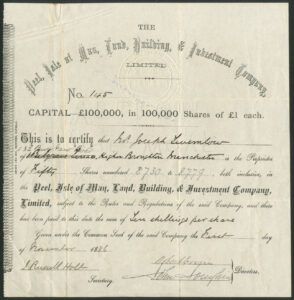 THE
Peel, Isle of Man, Land, Building, & Investment Company,
LIMITED
No. 145
CAPITAL £100,000, in 100,000 Shares of £1 each.
This is to certify that Joseph
Higher Broughton Manchester is the Proprietor
of Fifty Shares numbered 8730 to 8779 both inclusive, in
the Peel, Isle of Man, Land, Building, & Investment Company,
Limited, subject to the Rules and Regulations of the said Company, and that
has been paid up to this date the sum of Ten shillings per share
Given under the Common Seal of the said Company the First day
of November 1886
Directors.
J. Russell Holt
Secretary.